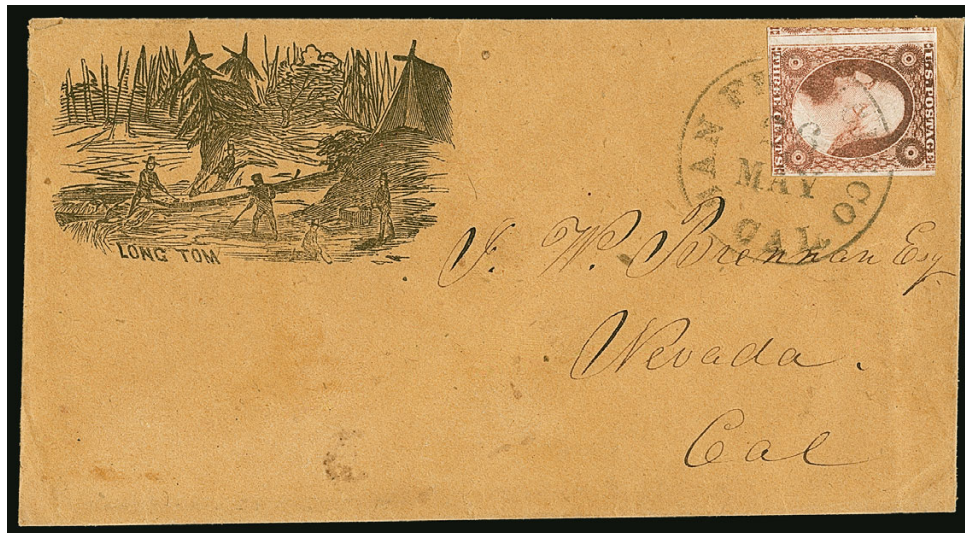 LONG TOM
U.S. POSTAGE
THREE CENTS
SAN FRANCISCO
MAY
CAL
J. W. Brennan Esq
Nevada.
Cal